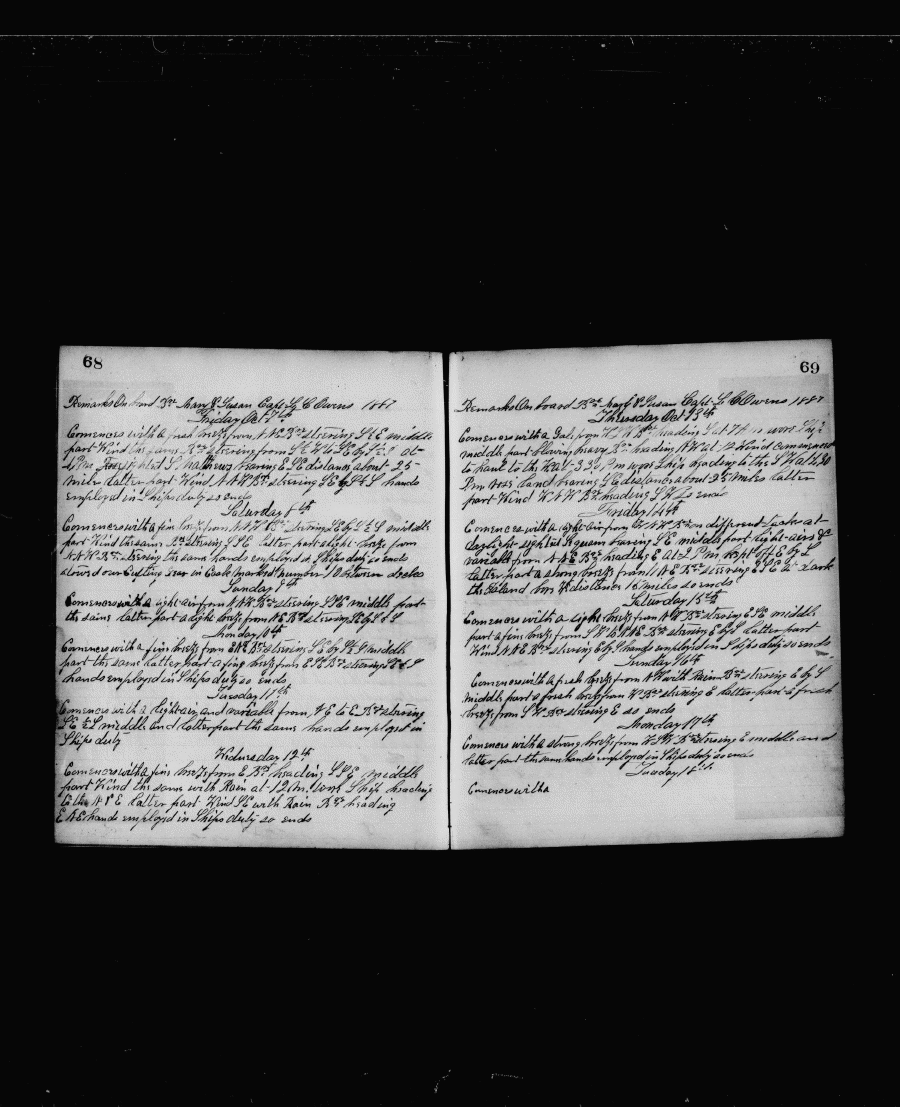 68
Remarks On bord Bk Mary & Susan Capt L C Owens 1867
Friday Oct 7th
Comences with a fresh breeze from N N E Bk steering S E middle
part Wind the same Bk steering from
4 Pm sighted St Mathews bearing E S E distance about 25
miles latter part Wind N N W Bk steering S E by S hands
employed in Ships duty so ends
Saturday 8th
Comences with a fine breeze from N N W Bk steering S E by S middle
part Wind the same Bk steering S S E latter part a light breeze from
N N W Bk steering the same hands employed in Ships duty so ends
stowed our Cutting Gear in Cask marked number 10 between decks
Sunday 9th
Comences with a light air from N N W Bk steering S S E middle part
the same latter part a light breeze from N E Bk steering
Monday 10th
Comences with a fine breeze from E N E Bk steering S E by S middle
part the same latter part a fine breeze from Bk steering
hands employed in Ships duty so ends
Tuesday 11th
Comences with a light air and variable from N E to E Bk steering
S E middle and latter part the same hands employed in
Ships duty
Wednesday 12th
Comences with a fine breeze from E Bk heading S S E middle
part Wind the same with Rain at 12 wore Ship heading
to the N & E latter part Wind S E with Rain Bk heading
E N E hands employed in Ships duty so ends
69
Remarks On board Bk Mary & Susan Capt L C Owens 1867
Thursday Oct 13th
Comences with a Gale from Bk heading at 7 wore Ship
middle part blowing heavy Bk heading N W at 12 Wind comenced
to haul to the 3.30 Pm wore Ship heading to the S W at 4.30
Pm land bearing distance about 25 miles latter
part Wind W N W Bk heading S W so ends
Friday 14th
Comences with a light air from W N W Bk on different tacks at
daylight sighted bearing S E middle part light airs &c
variable from N N E Bk heading E at 2 Pm kept off E by S
latter part a strong breeze from N E Bk steering E S E at dark
the Island bore W distance 16 miles so ends
Saturday 15th
Comences with a light breeze from N W Bk steering E S E middle
part a fine breeze from Bk steering E by S latter part
Wind N N E Bk steering E by S hands employed in Ships duty so ends
Sunday 16th
Comences with a fresh breeze from N W with Rain Bk steering E by S
middle part a fresh breeze from W Bk steering E latter part a fresh
breeze from S W Bk steering E so ends
Monday 17th
Comences with a strong breeze from W S W Bk steering E middle and
latter part the same hands employed in Ships duty so ends
Tuesday 18th
Comences with a